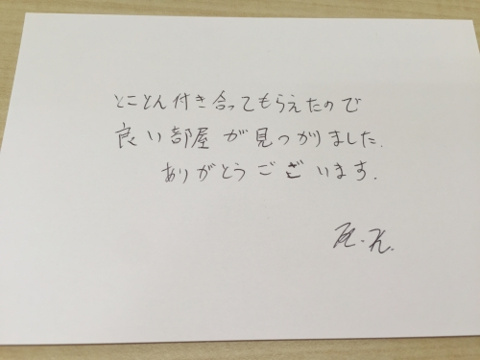 とことん付き合ってもらえたので
良い部屋が見つかりました.
ありがとうございます.